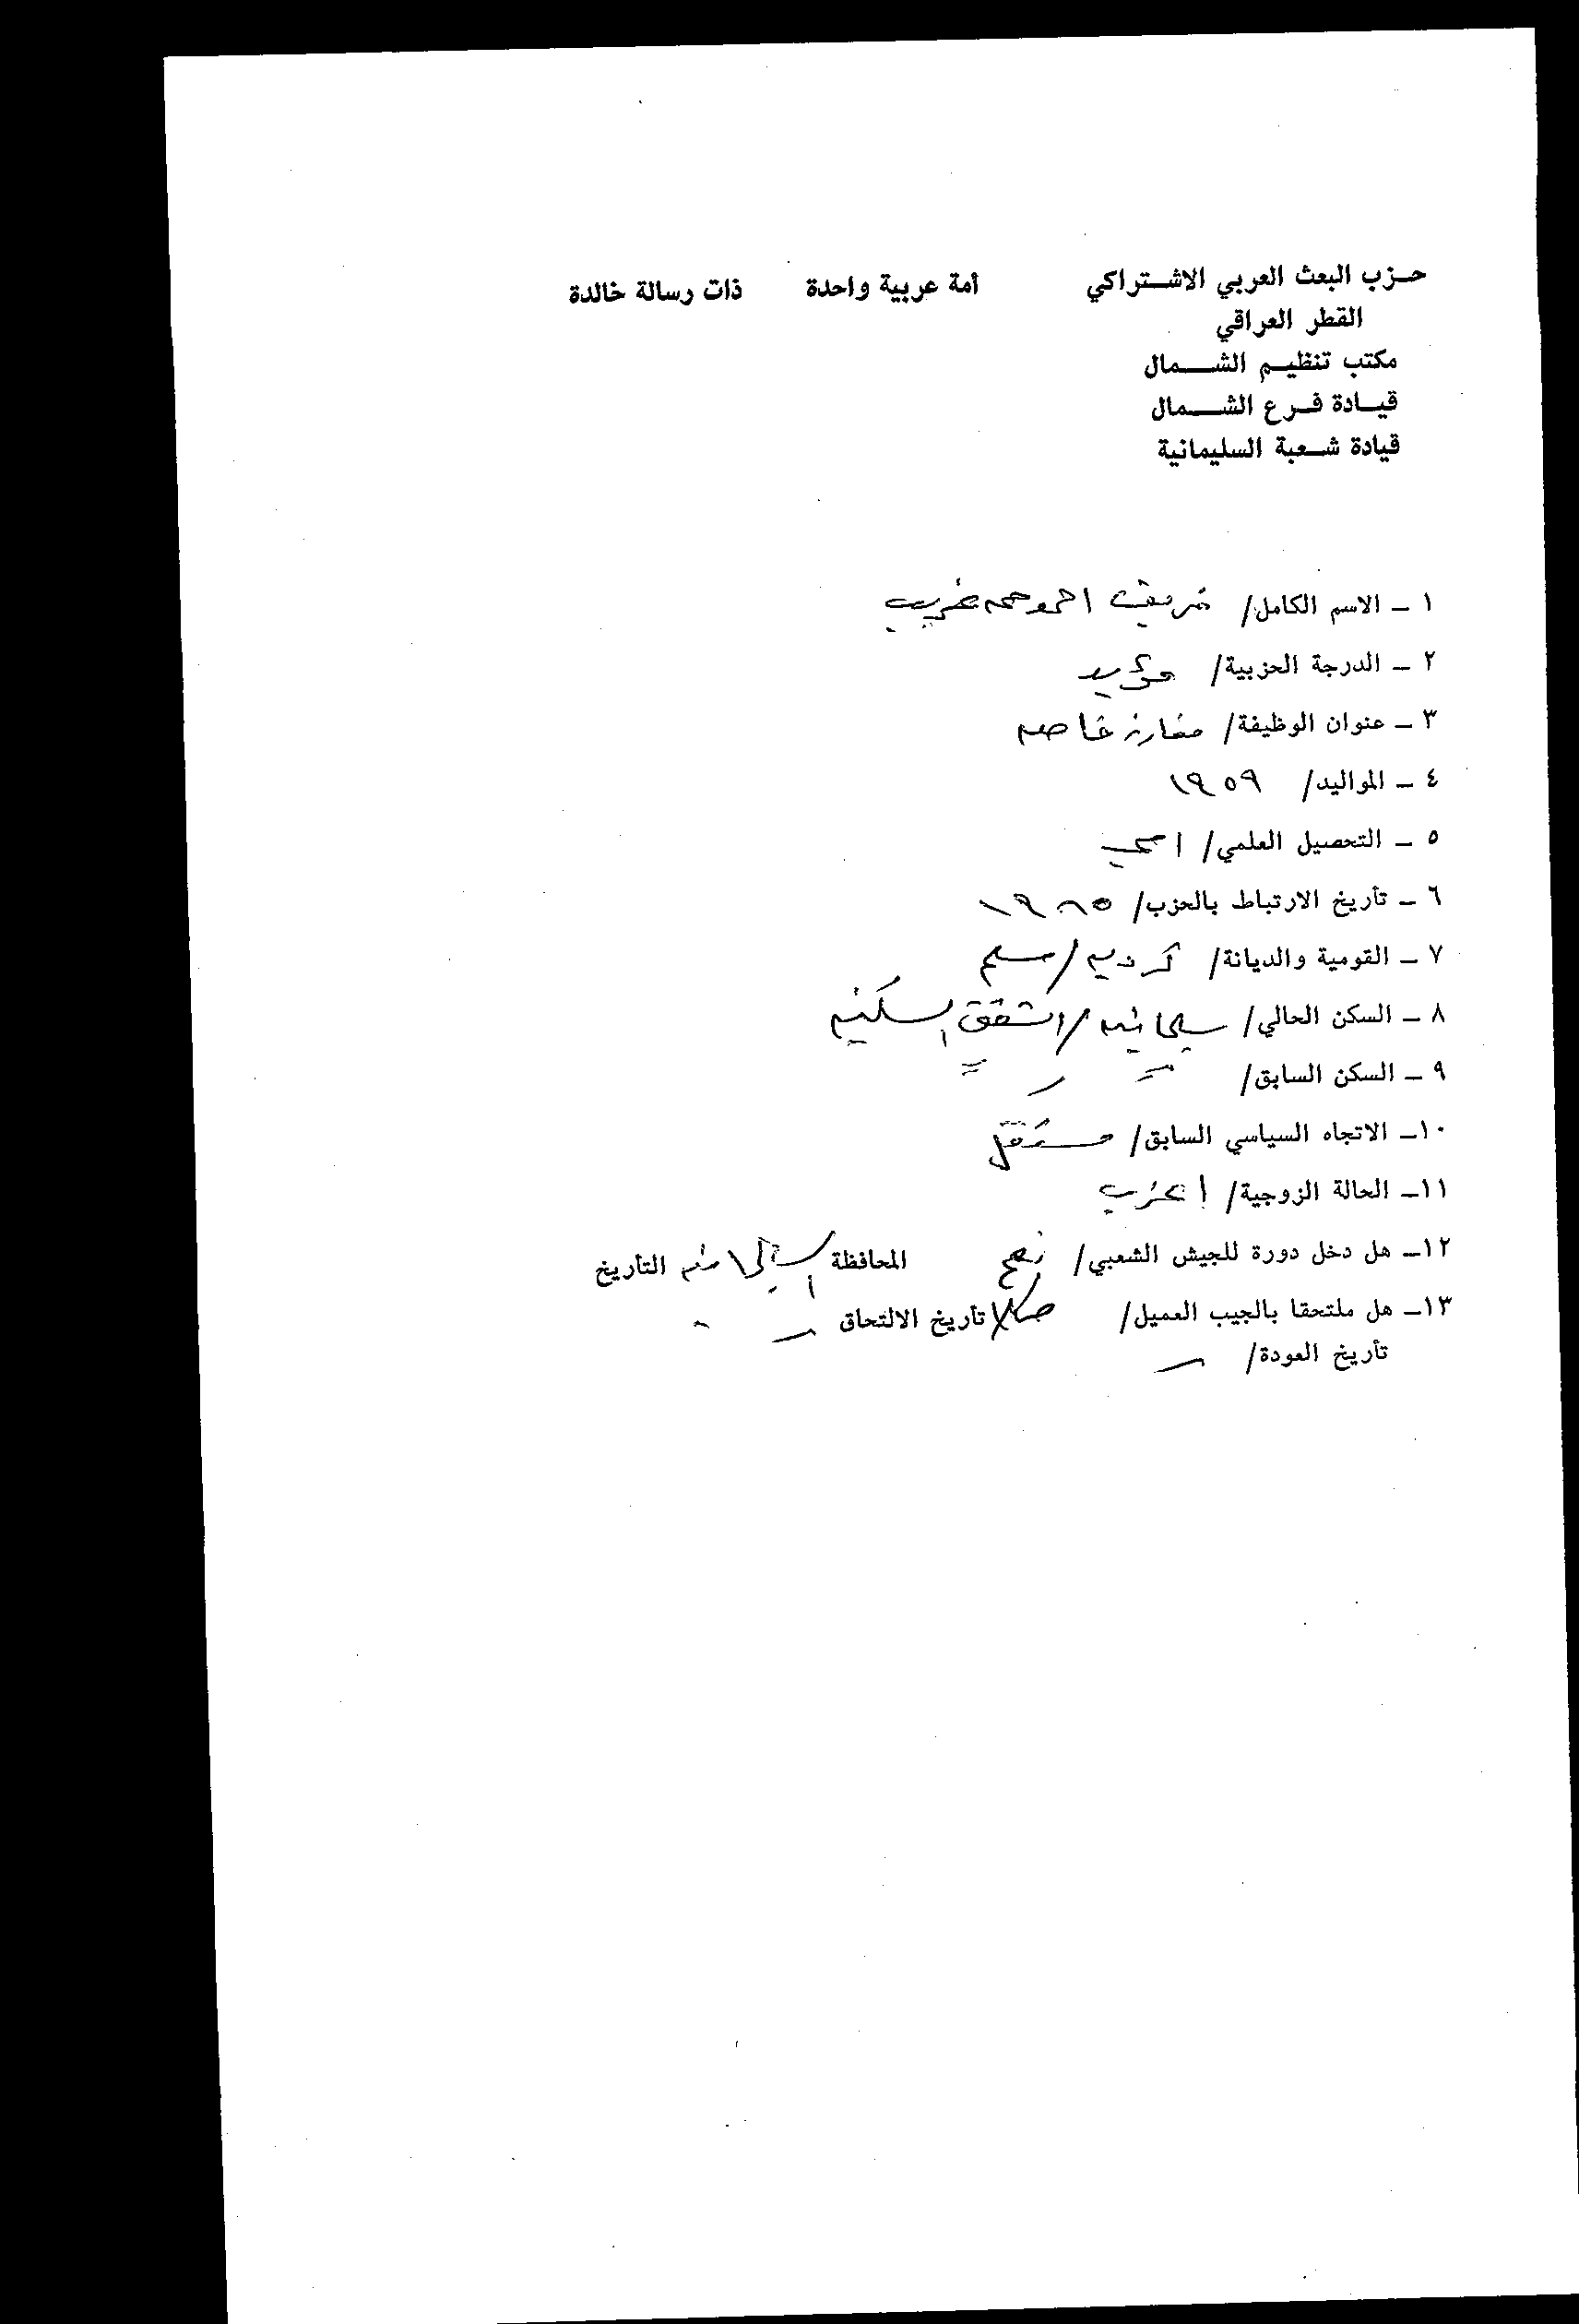 حزب البعث العربي الاشتراكي أمة عربية واحدة ذات رسالة خالدة
القطر العراقي
مكتب تنظيم الشمال
قيادة فرع الشمال
قيادة شعبة السليمانية
١ - الاسم الكامل/ غريب
٢ - الدرجة الحزبية/ مؤيد
٣ - عنوان الوظيفة/ مفارز خاصه
٤ - المواليد/ ١٩٥٩
٥ - التحصيل العلمي/ امي
٦ - تأريخ الارتباط بالحزب/ ١٩٨٥
٧ - القومية والديانة/ كرديه/مسلم
٨ - السكن الحالي/ سليمانيه/الشقق السكنيه
٩ - السكن السابق/ = / =
١٠- الاتجاه السياسي السابق/ مستقل
١١- الحالة الزوجية/ اعزب
١٢- هل دخل دورة للجيش الشعبي/ نعم المحافظة السليمانيه التأريخ
١٣- هل ملتحقا بالجيب العميل/ كلا تأريخ الالتحاق -
تأريخ العودة/ -